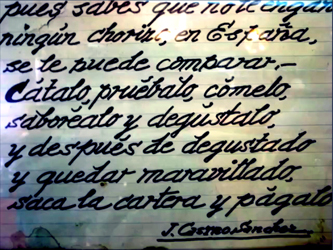 pues sabes que no te engañ
ningún chorizo, en España,
se le puede comparar.—
Cátalo, pruébalo, cómelo,
saboréalo y degústalo,
y después de degustado
y quedar maravillado,
saca la cartera y págalo
J. Castro Sánchez